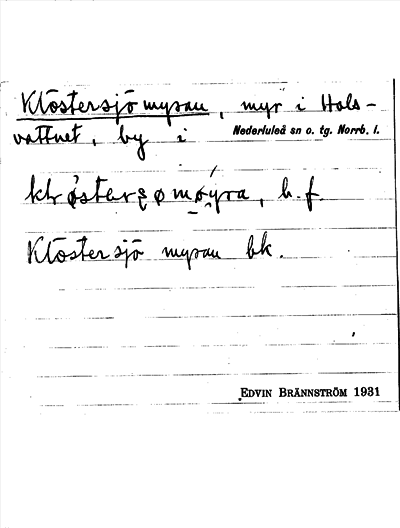 Klöstersjömyran, myr i Hols-
vattnet, by i Nederluleå sn o. tg. Norrb. l.
b. f.
Klöstersjö myran bk.
EDVIN BRÄNNSTRÖM 1931